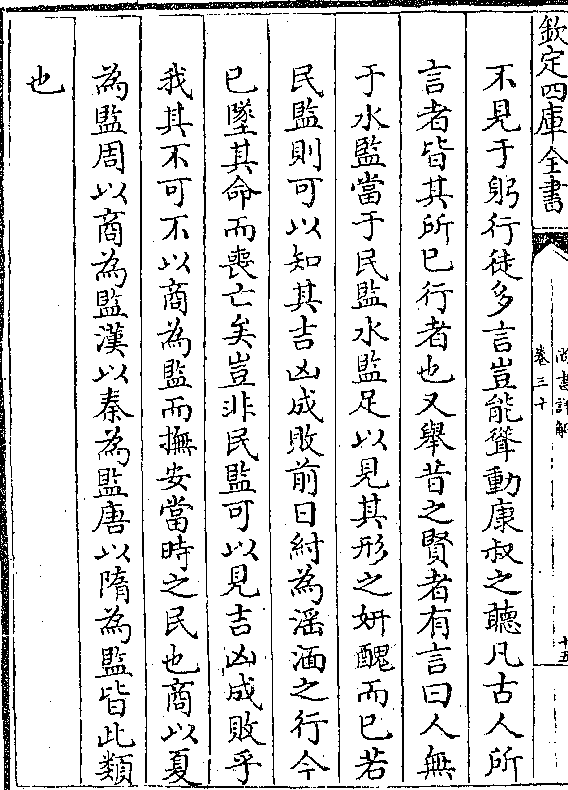 欽定四庫全書
尚書詳解
卷三十
十五
不見于躬行徒多言豈能聳動康叔之聽凡古人所
言者皆其所已行者也又舉昔之賢者有言曰人無
于水監當于民監水監足以見其形之妍醜而已若
民監則可以知其吉凶成敗前日紂為淫湎之行今
已墜其命而喪亡矣豈非民監可以見吉凶成敗乎
我其不可不以商為監而撫安當時之民也商以夏
為監周以商為監漢以秦為監唐以隋為監皆此類
也